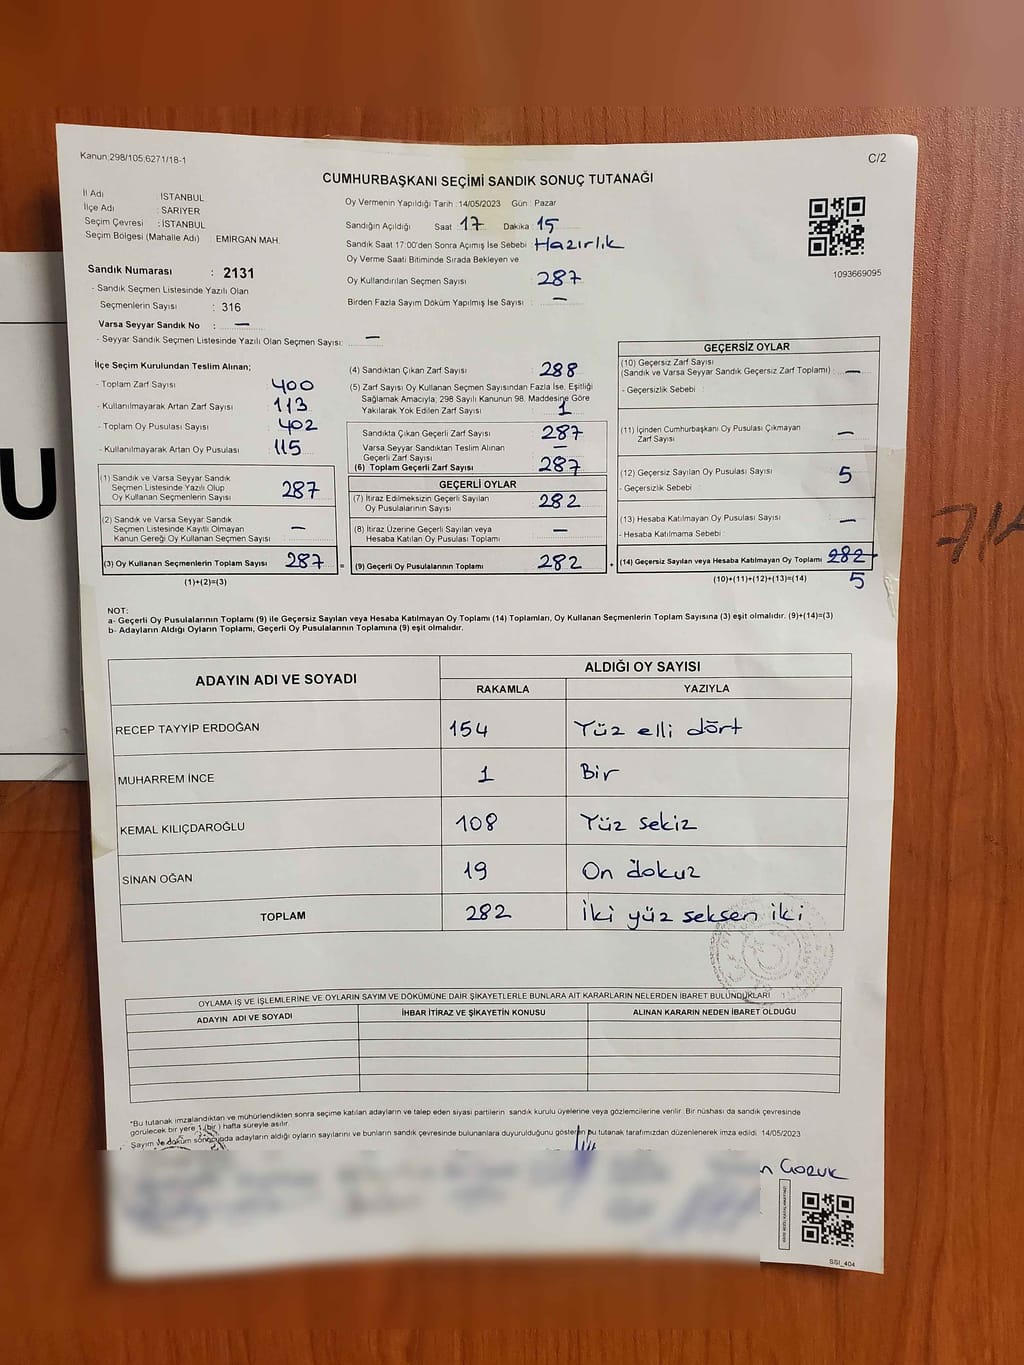 Kanun:298/105,6271/18-1
C/2
CUMHURBAŞKANI SEÇİMİ SANDIK SONUÇ TUTANAĞI
İl Adı : İSTANBUL
İlçe Adı : SARIYER
Seçim Çevresi : İSTANBUL
Seçim Bölgesi (Mahalle Adı) EMİRGAN MAH.
Oy Vermenin Yapıldığı Tarih :14/05/2023 Gün : Pazar
Sandığın Açıldığı Saat : 17 Dakika : 15
Sandık Saat 17:00'den Sonra Açımış İse Sebebi : Hazırlık
Oy Verme Saati Bitiminde Sırada Bekleyen ve
Oy Kullandırılan Seçmen Sayısı : 287
Birden Fazla Sayım Döküm Yapılmış İse Sayısı : —
1093669095
Sandık Numarası : 2131
- Sandık Seçmen Listesinde Yazılı Olan
Seçmenlerin Sayısı : 316
Varsa Seyyar Sandık No : —
- Seyyar Sandık Seçmen Listesinde Yazılı Olan Seçmen Sayısı: —
İlçe Seçim Kurulundan Teslim Alınan;
- Toplam Zarf Sayısı 400
- Kullanılmayarak Artan Zarf Sayısı : 113
- Toplam Oy Pusulası Sayısı : 402
- Kullanılmayarak Artan Oy Pusulası : 115
(1) Sandık ve Varsa Seyyar Sandık
Seçmen Listesinde Yazılı Olup
Oy Kullanan Seçmenlerin Sayısı : 287
(2) Sandık ve Varsa Seyyar Sandık
Seçmen Listesinde Kayıtlı Olmayan
Kanun Gereği Oy Kullanan Seçmen Sayısı : —
(3) Oy Kullanan Seçmenlerin Toplam Sayısı : 287
(1)+(2)=(3)
(4) Sandıktan Çıkan Zarf Sayısı : 288
(5) Zarf Sayısı Oy Kullanan Seçmen Sayısından Fazla İse, Eşitliği
Sağlamak Amacıyla; 298 Sayılı Kanunun 98. Maddesine Göre
Yakılarak Yok Edilen Zarf Sayısı : 1
Sandıkta Çıkan Geçerli Zarf Sayısı : 287
Varsa Seyyar Sandıktan Teslim Alınan
Geçerli Zarf Sayısı : —
(6) Toplam Geçerli Zarf Sayısı : 287
GEÇERLİ OYLAR
(7) İtiraz Edilmeksizin Geçerli Sayılan
Oy Pusulasının Sayısı : 282
(8) İtiraz Üzerine Geçerli Sayılan veya
Hesaba Katılan Oy Pusulası Toplamı : —
= (9) Geçerli Oy Pusulalarının Toplamı : 282
GEÇERSİZ OYLAR
(10) Geçersiz Zarf Sayısı
(Sandık ve Varsa Seyyar Sandık Geçersiz Zarf Toplamı) : —
- Geçersizlik Sebebi :
(11) İçinden Cumhurbaşkanı Oy Pusulası Çıkmayan
Zarf Sayısı : —
(12) Geçersiz Sayılan Oy Pusulası Sayısı : 5
- Geçersizlik Sebebi :
(13) Hesaba Katılmayan Oy Pusulası Sayısı : —
- Hesaba Katılmama Sebebi :
+ (14) Geçersiz Sayılan veya Hesaba Katılmayan Oy Toplamı : 282
(10)+(11)+(12)+(13)=(14) 5
NOT:
a- Geçerli Oy Pusulalarının Toplamı (9) ile Geçersiz Sayılan veya Hesaba Katılmayan Oy Toplamı (14) Toplamları, Oy Kullanan Seçmenlerin Toplam Sayısına (3) eşit olmalıdır. (9)+(14)=(3)
b- Adayların Aldığı Oyların Toplamı, Geçerli Oy Pusulalarının Toplamına (9) eşit olmalıdır.
ADAYIN ADI VE SOYADI ALDIĞI OY SAYISI
RAKAMLA YAZIYLA
RECEP TAYYİP ERDOĞAN 154 Yüz elli dört
MUHARREM İNCE 1 Bir
KEMAL KILIÇDAROĞLU 108 Yüz sekiz
SİNAN OĞAN 19 On dokuz
TOPLAM 282 İki yüz seksen iki
OYLAMA İŞ VE İŞLEMLERİNE VE OYLARIN SAYIM VE DÖKÜMÜNE DAİR ŞİKAYETLERLE BUNLARA AİT KARARLARIN NELERDEN İBARET BULUNDUKLARI
ADAYIN ADI VE SOYADI İHBAR İTİRAZ VE ŞİKAYETİN KONUSU ALINAN KARARIN NEDEN İBARET OLDUĞU
"Bu tutanak imzalandıktan ve mühürlendikten sonra seçime katılan adayların ve talep eden siyasi partilerin sandık kurulu üyelerine veya gözlemcilerine verilir. Bir nüshası da sandık çevresinde
görülecek bir yere 1 (bir) hafta süreyle asılır.
Sayım ve döküm sonucunda adayların aldığı oyların sayılarını ve bunların sandık çevresinde bulunanlara duyurulduğunu gösteren bu tutanak tarafımızdan düzenlenerek imza edildi. 14/05/2023
n Goruk
SSI_404
U